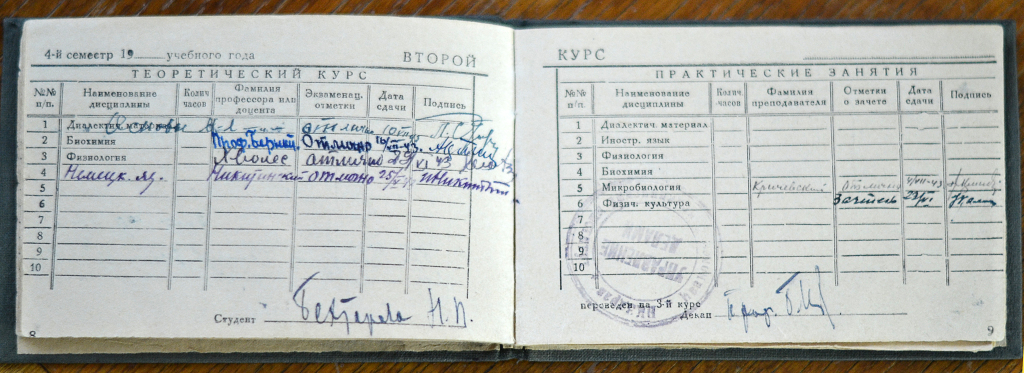 4-й семестр 19 учебного года ВТОРОЙ
ТЕОРЕТИЧЕСКИЙ КУРС
№№ п/п. Наименование дисциплины Колич часов Фамилия профессора или доцента Экзаменац. отметки Дата сдачи Подпись
1 Диалектич. отлично
2 Биохимия Проф. отлично
3 Физиология отлично
4 Немецк. яз. отлично
5
6
7
8
9
10
Студент Бехтерева Н. П.
8
КУРС
ПРАКТИЧЕСКИЕ ЗАНЯТИЯ
№№ п/п. Наименование дисциплины Колич. часов Фамилия преподавателя Отметки о зачете Дата сдачи Подпись
1 Диалектич. материал
2 Иностр. язык
3 Физиология
4 Биохимия
5 Микробиология отлично
6 Физич. культура
7
8
9
10
УПРАВЛЕНИЕ
ДЕЛАМИ
переведен на 3-й курс
Декан Проф.
9